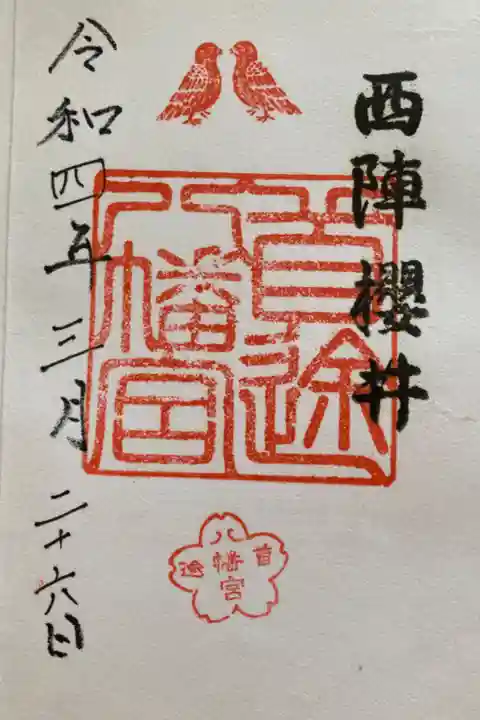 西陣櫻井
首途
八幡宮
首途
八幡宮
令和四年三月二十六日